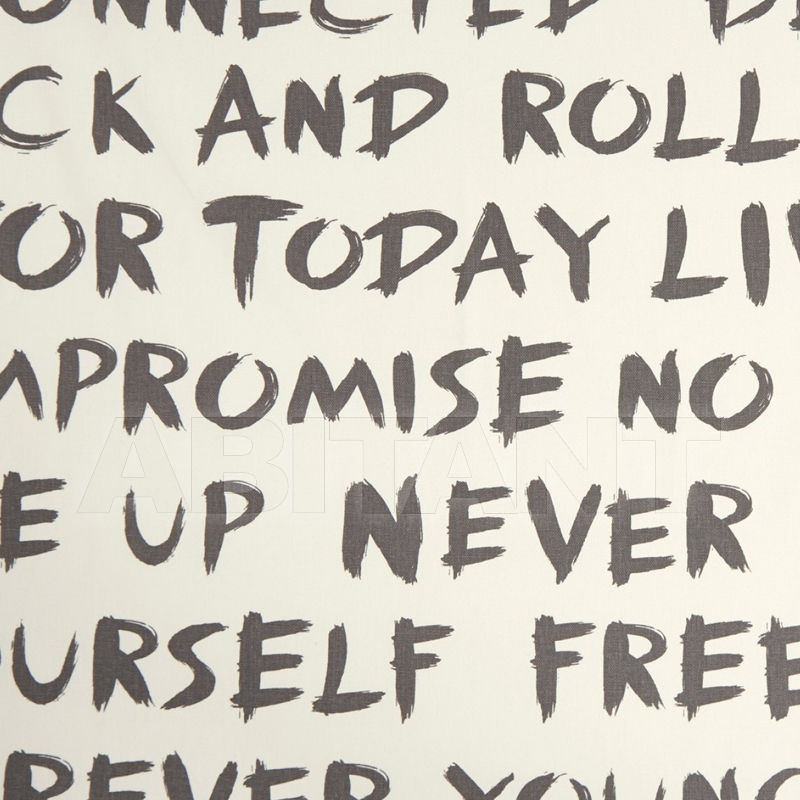 ONNECTED
CK AND ROLL
OR TODAY LIV
MPROMISE NO
E UP NEVER
OURSELF FREE
REVER YOUNG
ABITANT